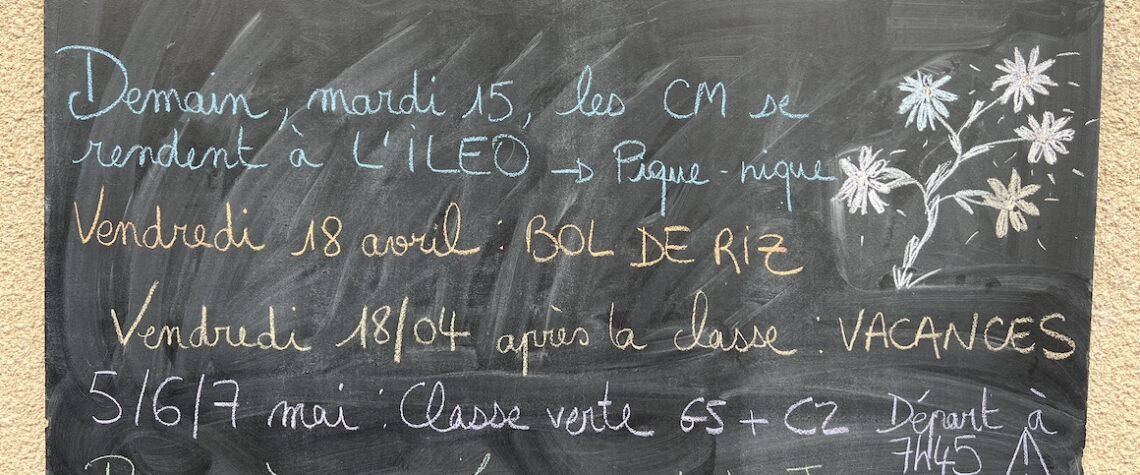 Demain, mardi 15, les CM se
rendent à L'ÎLEO → Pique-nique
Vendredi 18 avril : BOL DE RIZ
Vendredi 18/04 après la classe : VACANCES
5/6/7 mai : Classe verte GS + CZ Départ à
7h45